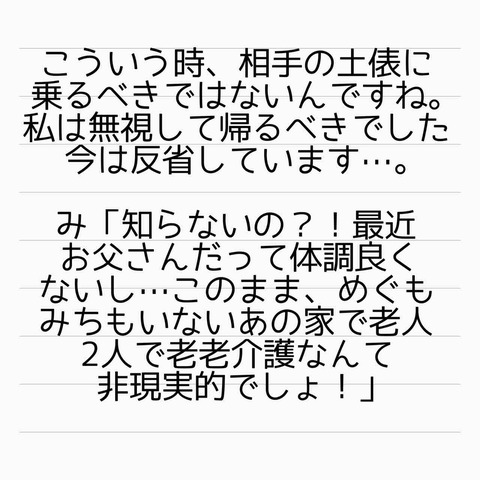 こういう時、相手の土俵に
乗るべきではないんですね。
私は無視して帰るべきでした
今は反省しています…。
み「知らないの？！最近
お父さんだって体調良く
ないし…このまま、めぐも
みちもいないあの家で老人
2人で老老介護なんて
非現実的でしょ！」